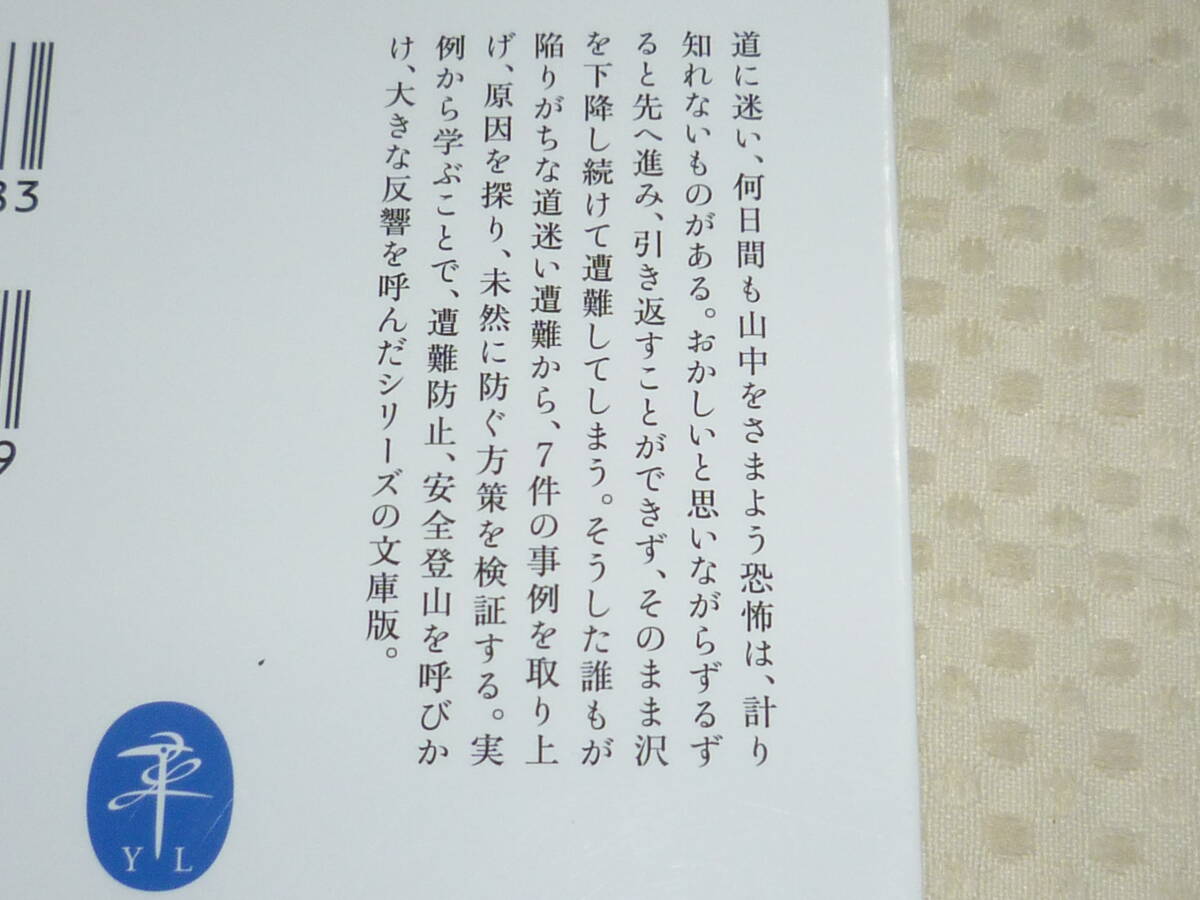 道に迷い、何日間も山中をさまよう恐怖は、計り
知れないものがある。おかしいと思いながらずるず
ると先へ進み、引き返すことができず、そのまま沢
を下降し続けて遭難してしまう。そうした誰もが
陥りがちな道迷い遭難から、7件の事例を取り上
げ、原因を探り、未然に防ぐ方策を検証する。実
例から学ぶことで、遭難防止、安全登山を呼びか
け、大きな反響を呼んだシリーズの文庫版。
83
9
Y L